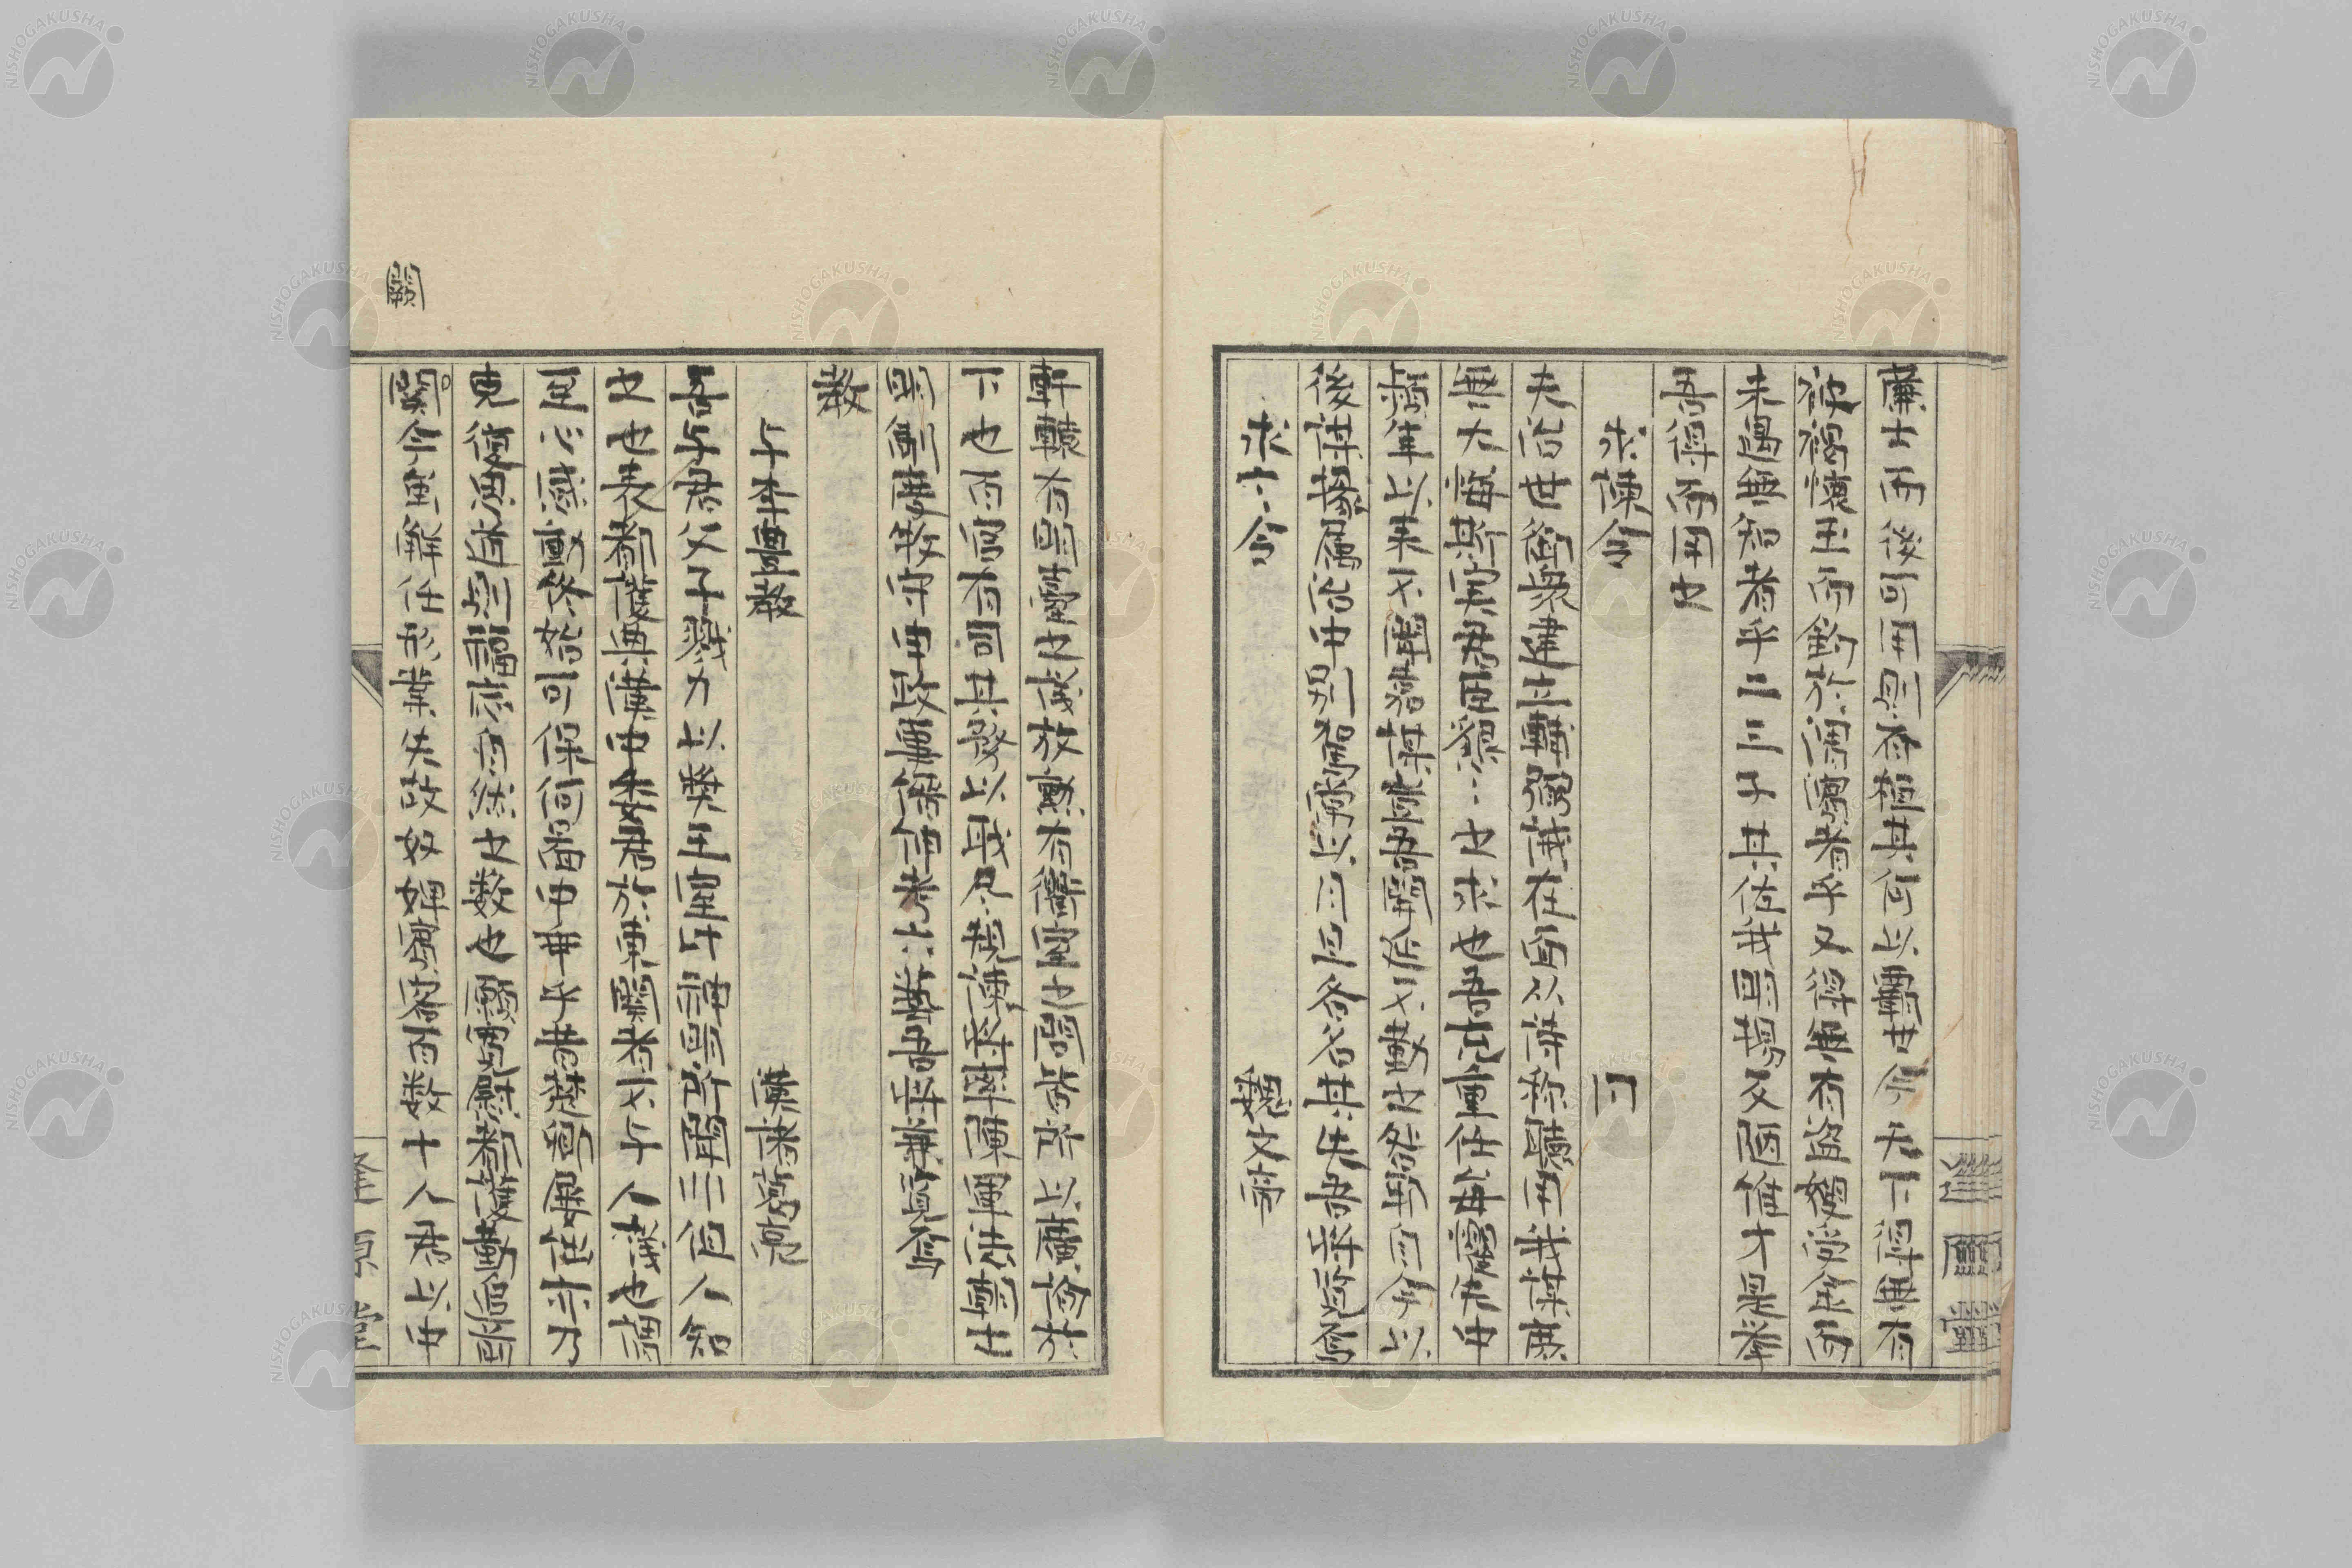 廉士而後可用則斉桓其何以霸世今天下得無有
被褐懐玉而釣於渭濱者乎又得無有盜嫂受金而
未遇無知者乎二三子其佐我明揚仄陋惟才是挙
吾得而用之
求諫令 同
夫治世御衆建立輔弼誡在面从詩称聴用我謀庶
無大悔斯実君臣懇々之求也吾充重任毎懼失中
頻年以来不聞嘉謀豈吾開延不勤之咎耶自今以
後諸掾属治中別駕常以月旦各言其失吾将覧焉
求言令 魏文帝
軒轅有明臺之議放勲有衢室之問皆所以廣詢於
下也百官有司其務以職尽規諫将率陳軍法朝士
明制度牧守申政事縉紳考六藝吾将兼覧焉
教
与李豊教 漢諸葛亮
吾与君父子戮力以奨王室此神明所聞非但人知
之也表都護典漢中委君於東関者不与人議也謂
至心感動終始可保何図中乖乎昔楚卿屡絀亦乃
克復思道則福応自然之数也願寛慰都護勤追前
闕
関今雖解任形業失故奴婢賓客百数十人君以中
逢原堂